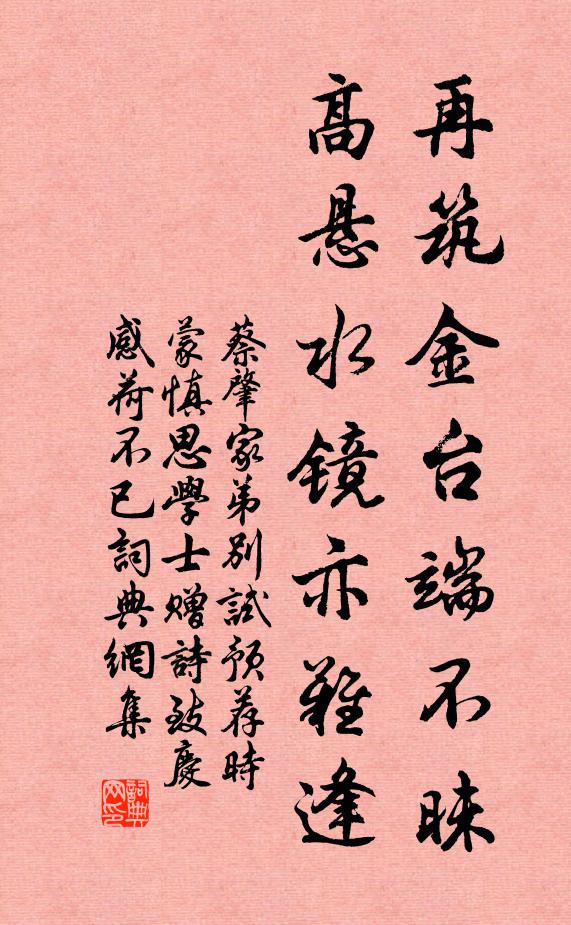 再筑金台端不昧
高悬水镜亦難逢
蔡肇家弟别試预荐時
蒙慎思學士赠詩致慶
感荷不已詞典網集
詞典网印